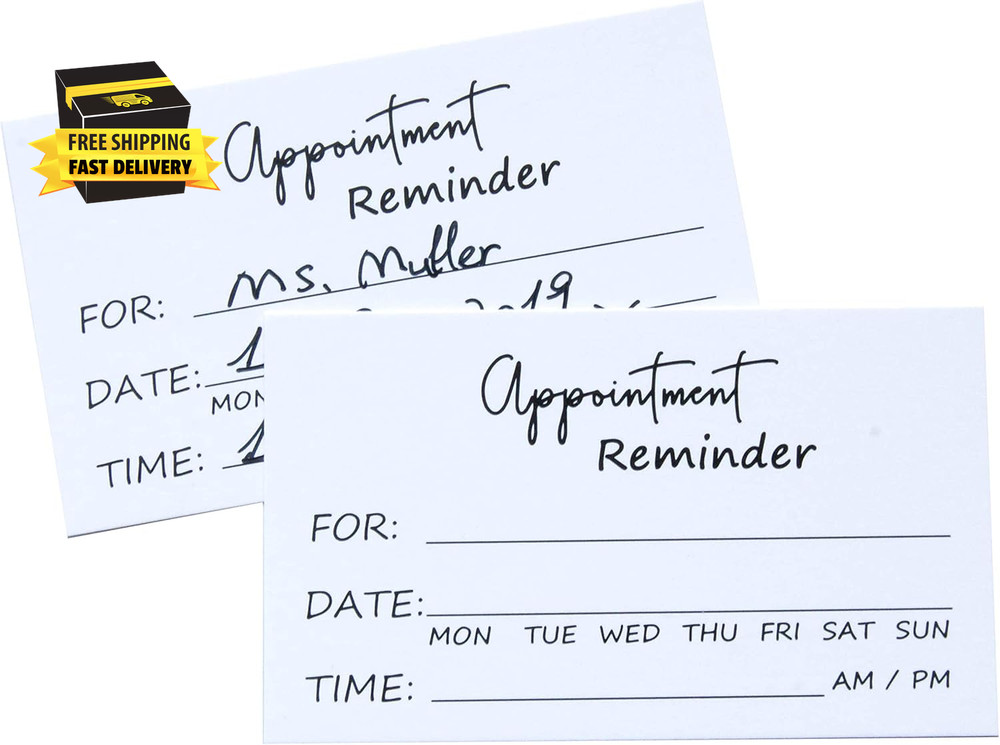 FREE SHIPPING
FAST DELIVERY
Appointment
Reminder
FOR: Ms. Muller
DATE: 1
MON
TIME: 1
Appointment
Reminder
FOR:
DATE:
MON TUE WED THU FRI SAT SUN
TIME: AM / PM